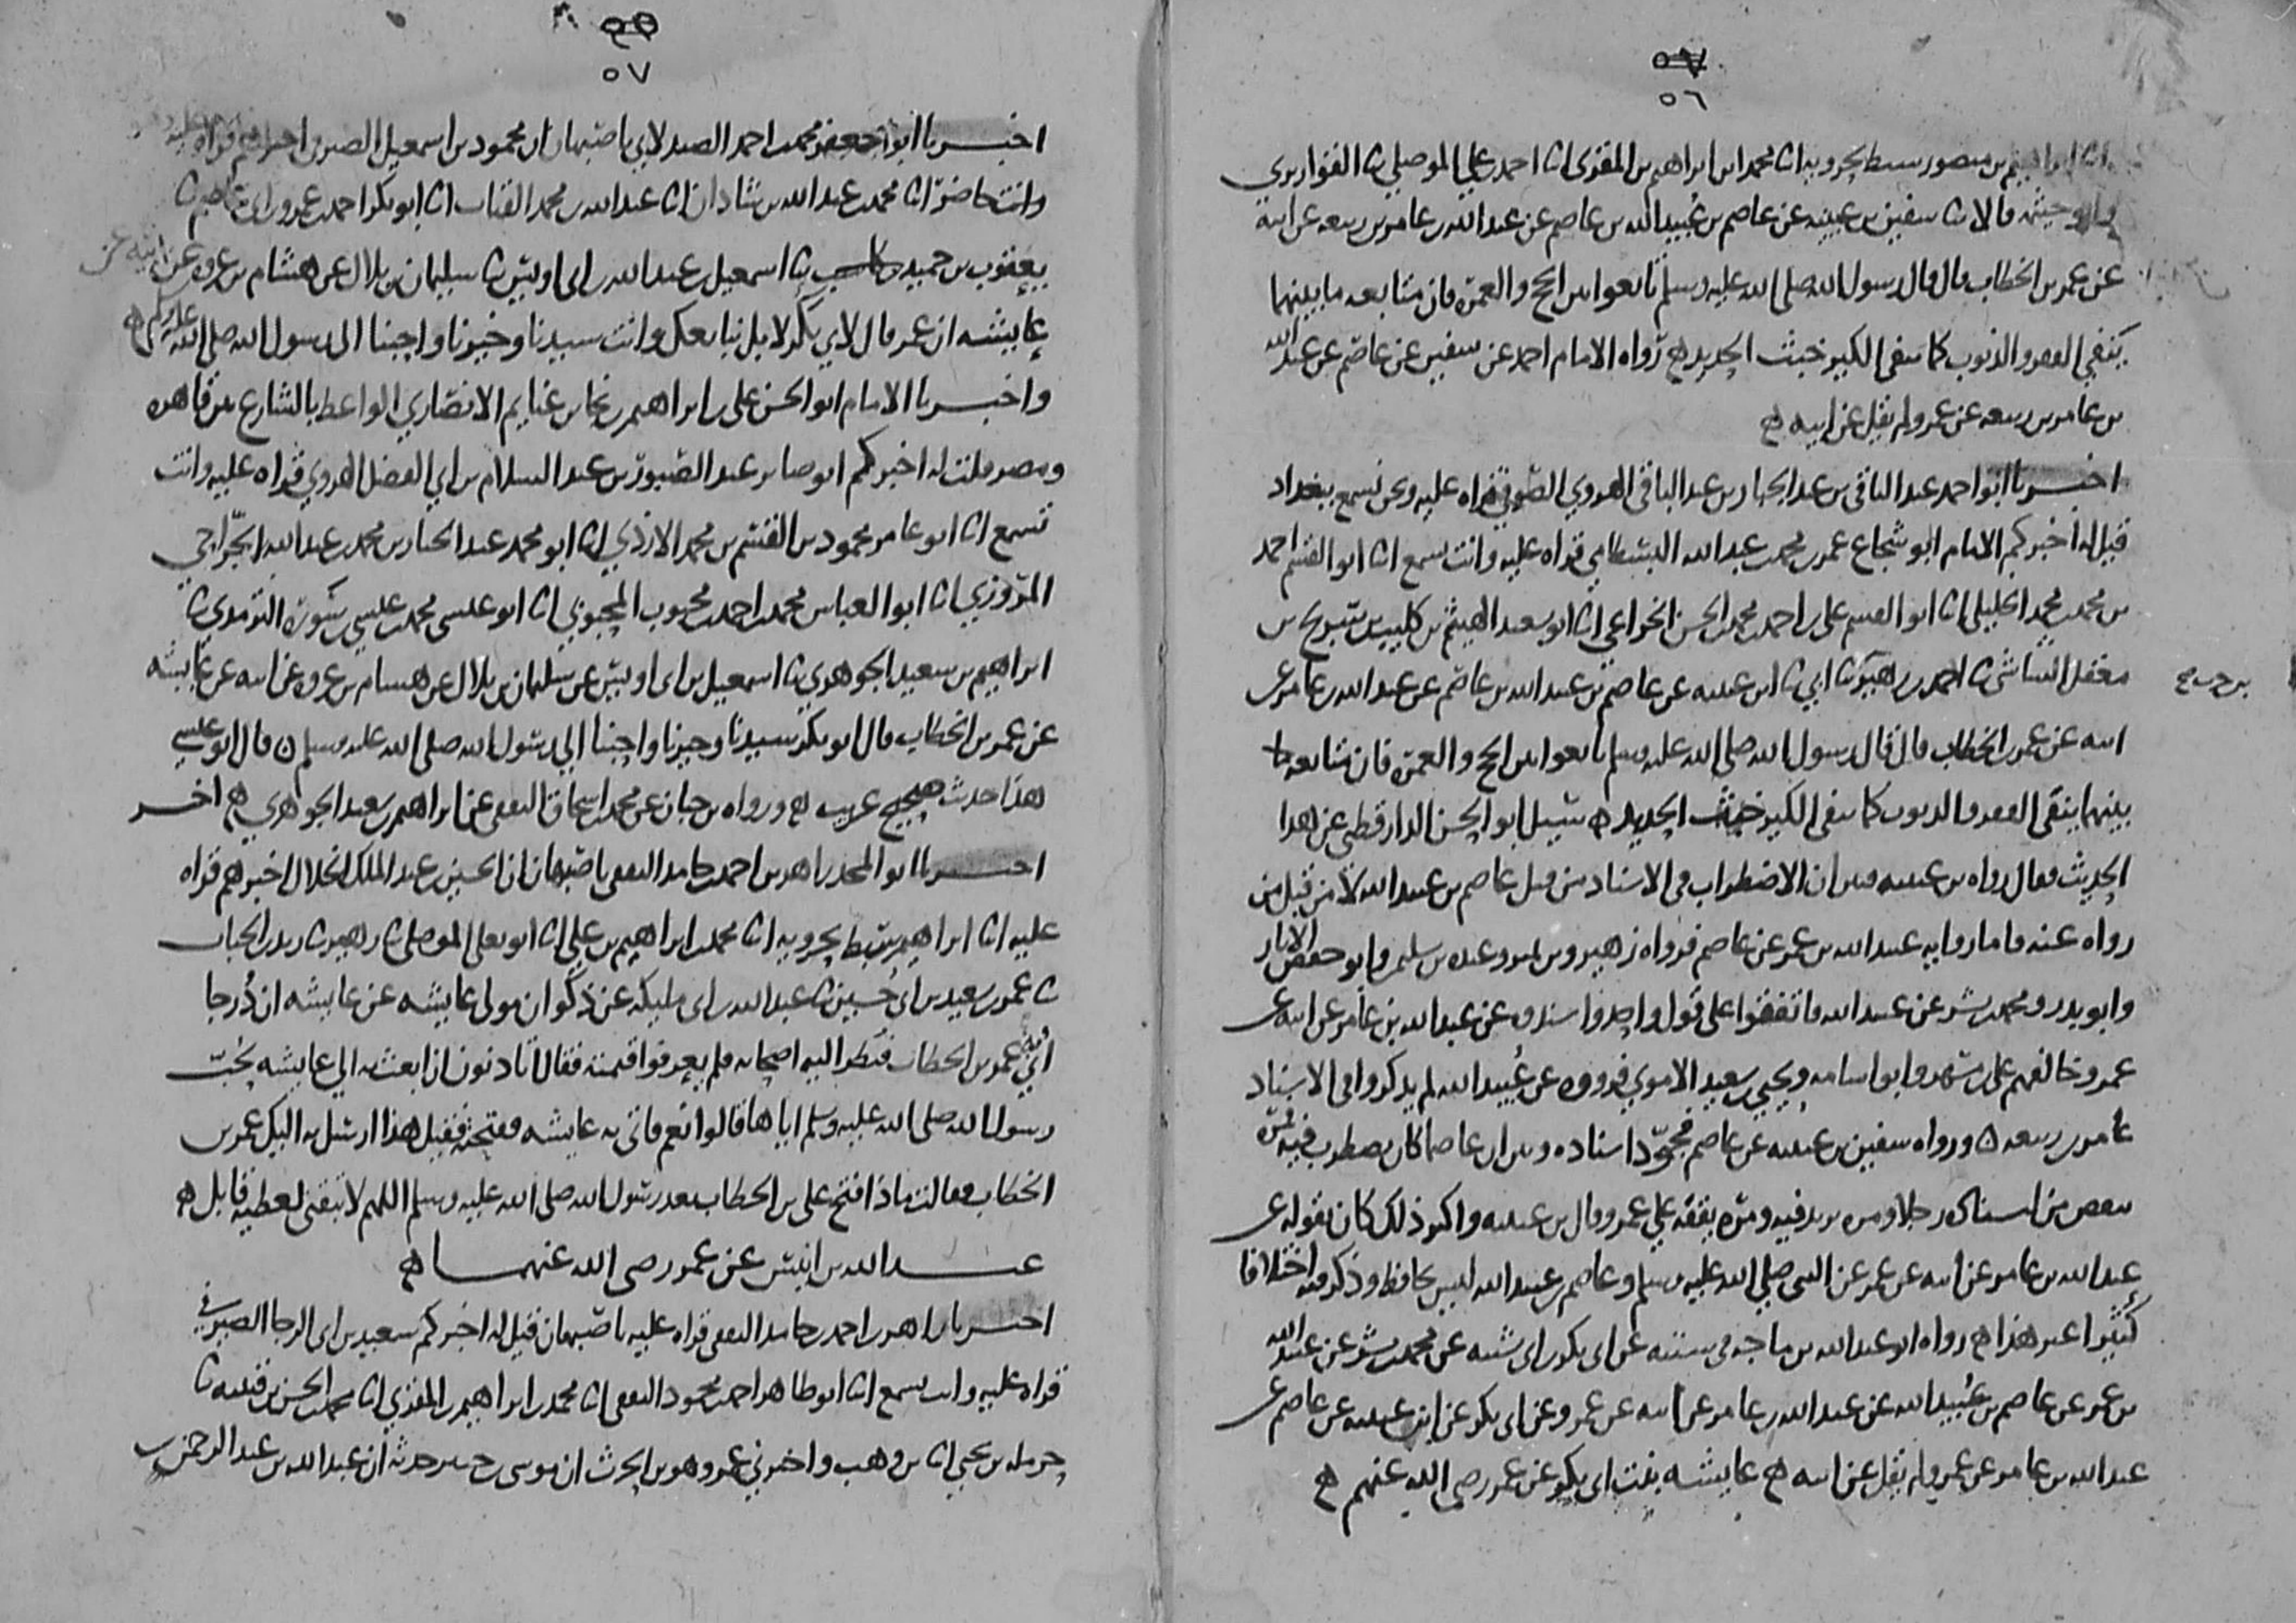 ٥٦
انا ابراهيم بن منصور سبط بحرويه انا محمد ابن ابراهيم بن المقرى انا احمد بن علي الموصلي ثنا القواريري
وابو خيثمه قالا ثنا سفين بن عيينه عن عاصم بن عُبيد الله بن عاصم عن عبد الله بن عامر بن ربيعه عن ابيه
عن عمر بن الخطاب قال قال رسول الله صلى الله عليه وسلم تابعوا بين الحج والعمرة فان متابعه ما بينهما
ينفي الفقر والذنوب كما ينفى الكير خبث الحديد ه رواه الامام احمد عن سفين عن عاصم عن عبد الله
بن عامر بن ربيعه عن عمر ولم يقل عن ابيه ه
اخبرنا ابو احمد عبد الباقي بن عبد الجبار بن عبد الباقي الهروي الصوفي قراه عليه ونحن نسمع ببغداد
قيل له اخبركم الامام ابو شجاع عمر بن محمد بن عبد الله البسطامي قراه عليه وانت تسمع انا ابو القسم احمد
بن محمد بن محمد الخليلي انا ابو القسم على بن احمد بن محمد بن الحسن الخزاعي انا ابو سعيد الهيثم بن كليب بن شريح بن
معقل الشاشى ثنا احمد بن زهير ثنا ابي ثنا ابن عيينه عن عاصم بن عبيد الله بن عاصم عن عبد الله بن عامر عن
بن حرب صح
ابيه عن عمر بن الخطاب قال قال رسول الله صلى الله عليه وسلم تابعوا بين الحج والعمرة فان متابعه ما
بينهما ينفى الفقر والذنوب كما ينفى الكير خبث الحديد ه سيل ابو الحسن الدارقطني عن هذا
الحديث فقال رواه بن عيينه وبين ان الاضطراب في الاسناد من قبل عاصم بن عبيد الله لا من قبل من
رواه عنه فاما رواية عبيد الله بن عمر عن عاصم فرواه زهير وبن نمير وعبده بن سليمن وابو حفص الابار
وابو بدر ومحمد بن بشر عن عبيد الله فاتفقوا على قول واحد واسندوه عن عبد الله بن عامر عن ابيه عن
عمر وخالفهم علي بن مسهر وابو اسامه ويحيى بن سعيد الاموي فرووه عن عُبيد الله لم يذكروا في الاسناد
عامر بن ربيعه ه ورواه سفين بن عيينه عن عاصم فجوّد اسناده وبين ان عاصما كان يضطرب فيه فمرّة
ينقص من اسناده رجلا ومره يزيد فيه ومرّه يقفه على عمر وقال بن عيينه واكثر ذلك كان يقوله عن
عبد الله بن عامر عن ابيه عن عمر عن النبي صلى الله عليه وسلم وعاصم بن عبيد الله ليس بحافظ وذكر فيه اختلافا
كثيرا غير هذا ه رواه ابو عبد الله بن ماجه في سننه عن ابى بكر بن ابي شيبه عن محمد بن بشر عن عبيد الله
بن عمر عن عاصم بن عُبيد الله عن عبد الله بن عامر عن ابيه عن عمر وعن ابى بكر عن ابن عيينه عن عاصم عن
عبد الله بن عامر عن عمر ولم يقل عن ابيه ه عايشه بنت ابى بكر عن عمر رضي الله عنهم ه
٥٧
اخبرنا ابو جعفر محمد بن احمد الصيدلاني باصبهان ان محمود بن اسمعيل الصيرفى اخبرهم قراه عليه
وانت حاضر انا محمد بن عبد الله بن شاذان انا عبد الله بن محمد القباب انا ابو بكر احمد بن عمرو بن ابي عاصم ثنا
يعقوب بن حميد بن كاسب ثنا اسمعيل بن عبد الله بن ابي اويس ثنا سليمان بن بلال عن هشام بن عروه عن ابيه عن
عايشه ان عمر قال لابي بكر لا بل نبايعك وانت سيدنا وخيرنا واحبنا الى رسول الله صلى الله عليه وسلم ه
واخبرنا الامام ابو الحسن على بن ابراهيم بن نجا بن غنايم الانصاري الواعظ بالشارع بين قاهره
ومصر قلت له اخبركم ابو صابر عبد الصبور بن عبد السلام بن ابي الفضل الهروي قراه عليه وانت
تسمع انا ابو عامر محمود بن القسم بن محمد الازدي انا ابو محمد عبد الجبار بن محمد بن عبد الله الجرّاحي
المرّوزي انا ابو العباس محمد بن احمد بن محبوب المحبوبي انا ابو عيسى محمد بن عيسى بن سَورة الترمدى ثنا
ابراهيم بن سعيد الجوهري ثنا اسمعيل بن ابى اويس عن سليمان بن بلال عن هشام بن عروه عن ابيه عن عايشه
عن عمر بن الخطاب قال ابو بكر سيدنا وخيرنا واحبنا الى رسول الله صلى الله عليه وسلم ه قال ابو عيسى
هذا حديث صحيح غريب ه ورواه بن حبان عن محمد بن اسحاق الثقفى عن ابراهيم بن سعيد الجوهري ه اخر
اخبرنا ابو المجد زاهر بن احمد بن حامد الثقفى باصبهان ان الحسين بن عبد الملك الخلال اخبرهم قراه
عليه انا ابراهيم سبط بحرويه انا محمد بن ابراهيم بن علي انا ابو يعلى الموصلى ثنا زهير ثنا زيد بن الحباب
ثنا عمر بن سعيد بن ابى حُسين ثنا عبد الله بن ابى مليكه عن ذكوان مولى عايشه عن عايشه ان دُرجا
اُتي به عمر بن الخطاب فنظر اليه اصحابه فلم يعرفوا قيمته فقال اتاذنون ان ابعث به الى عايشه لحُبّ
رسول الله صلى الله عليه وسلم اياها قالوا نعم فاتى به عايشه ففتحته فقيل هذا ارسل به اليك عمر بن
الخطاب فقالت ماذا فتح على بن الخطاب بعد رسول الله صلى الله عليه وسلم اللهم لا تبقنى لعطيه قابل ه
عبد الله بن انيس عن عمر رضى الله عنهما ه
اخبرنا زاهر بن احمد بن حامد الثقفى قراه عليه باصبهان قيل له اخبركم سعيد بن ابى الرجا الصيرفى
قراه عليه وانت تسمع انا ابو طاهر احمد بن محمود الثقفى انا محمد بن ابراهيم بن المقري انا محمد بن الحسن بن قتيبه ثنا
حرمله بن يحيى انا بن وهب واخبرني عمرو هو بن الحرث ان موسى بن جبير حدثه ان عبد الله بن عبد الرحمن بن